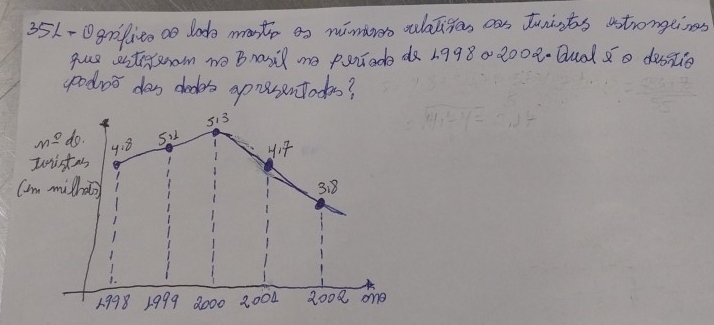 35L - O gráfico ao lado mostra os números relativos aos turistas estrangeiros
que estiveram no Brasil no período de 1998 a 2002. Qual é o desvio
padrão dos dados apresentados?
nº de
turistas
(em milhões)
4,8
5,1
5,3
4,7
3,8
1998 1999 2000 2001 2002 ano